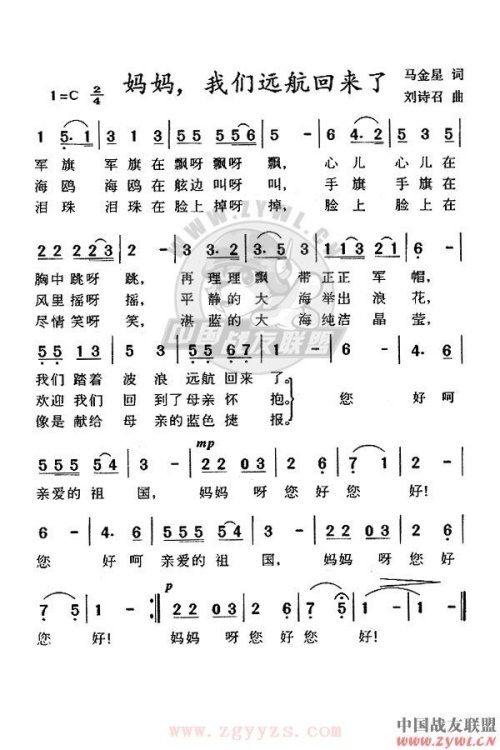 妈妈，我们远航回来了
马金星 词
1=C 2/4
刘诗召 曲
1 5·1 | 3 1 3 | 55 5 5 56 | 5 - | 6 4·2 | 5 3 1 |
军旗 军旗在飘呀飘呀飘，心儿 心儿在
海鸥 海鸥在舷边叫呀叫，手旗 手旗在
泪珠 泪珠在脸上掉呀掉，脸上 脸上在
22 223 | 2 - | 3 3·2 | 3·5 3 | 1113 21 | 6 - |
胸中跳呀跳，再理理飘带正正军帽，
风里摇呀摇，平静的大海举出浪花，
尽情笑呀笑，湛蓝的大海纯洁晶莹，
55 13 | 5 53 | 55 67 | 1 - | 6 - | 4·6 |
我们踏着波浪远航回来了。
欢迎我们回到了母亲怀抱。 您 好呵
像是献给母亲的蓝色捷报。
mp
555 54 | 3 - | 22 03 | 2 6 | 7 1 | 2 - |
亲爱的祖国，妈妈呀您好您好！
6 - | 4·6 | 555 54 | 3 - | 22 03 | 2 6 |
您 好呵亲爱的祖国，妈妈呀您好
p
7 5 | 1 - :| 22 03 | 2 6 | 7 5 | 1 - | 1 - ||
您 好！ 妈妈呀您好您好！
WWW.ZYWL.CN
中国战友联盟
www.zgyyzs.com
中国战友联盟
www.ZYWL.CN